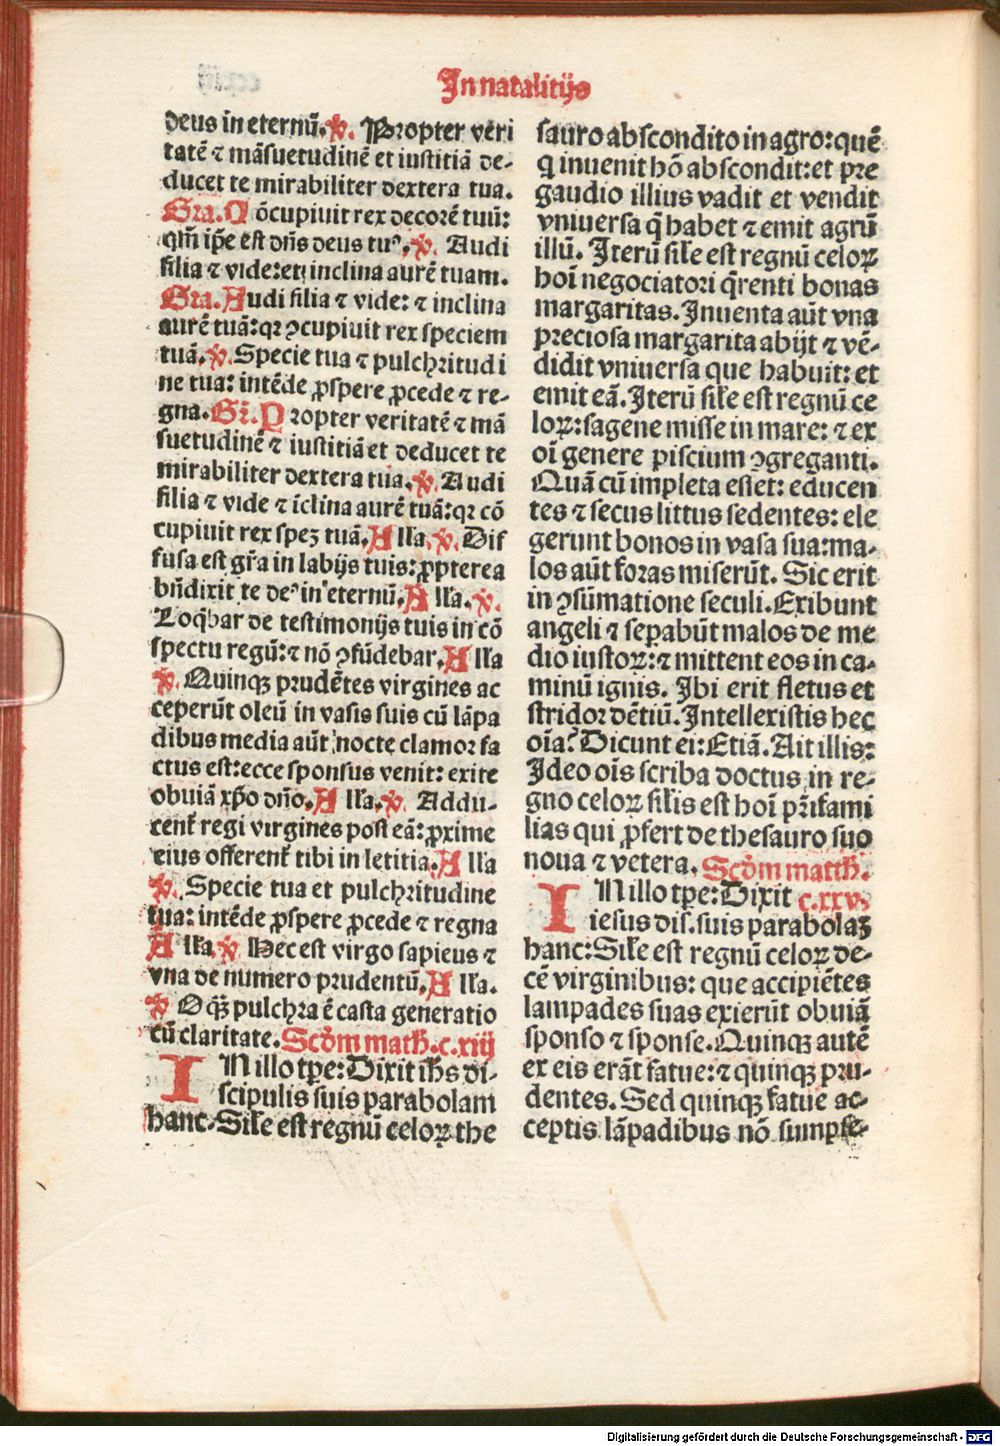 In natalitijs
deus in eternū. ℣. Propter veri
tatē ⁊ māsuetudinē et iustitiā de-
ducet te mirabiliter dextera tua.
Gra. Cōcupiuit rex decorē tuū:
qm̄ ip̄e est dn̄s deus tuꝰ. ℣. Audi
filia ⁊ vide: et inclina aurē tuam.
Gra. Audi filia ⁊ vide: ⁊ inclina
aurē tuā: qꝛ ꝯcupiuit rex speciem
tuā. ℣. Specie tua ⁊ pulchꝛitudi
ne tua: intēde ꝓspere ꝓcede ⁊ re-
gna. Gr̄. Propter veritatē ⁊ mā
suetudinē ⁊ iustitiā et deducet te
mirabiliter dextera tua. ℣. Audi
filia ⁊ vide ⁊ īclina aurē tuā: qꝛ cō
cupiuit rex speꝫ tuā. Alla. ℣. Dif
fusa est gr̄a in labijs tuis: ꝓpterea
bn̄dixit te deꝰ in eternū. Alla. ℣.
Loq̄bar de testimonijs tuis in cō
spectu regū: ⁊ nō ꝯfūdebar. Alla
℣. Quinqꝫ prudētes virgines ac
ceperūt oleū in vasis suis cū lāpa
dibus media aūt nocte clamor fa
ctus est: ecce sponsus venit: exite
obuiā xp̄o dn̄o. Alla. ℣. Addu-
cent̄ regi virgines post eā: ꝓxime
eius offerent̄ tibi in letitia. Alla
℣. Specie tua et pulchꝛitudine
tua: intēde ꝓspere ꝓcede ⁊ regna
Alla ℣. Hec est virgo sapiens ⁊
vna de numero prudentū. Alla.
℣. O qꝫ pulchꝛa ē casta generatio
cū claritate. Scd̄m math̄. c. xiij
IN illo tp̄e: Dixit ih̄s di-
scipulis suis parabolam
hanc. Sil̄e est regnū celoꝝ the
sauro abscondito in agro: quē
q̄ inuenit hō abscondit: et pre
gaudio illius vadit et vendit
vniuersa q̄ habet ⁊ emit agrū
illū. Iterū sil̄e est regnū celoꝝ
hoī negociatori q̄renti bonas
margaritas. Inuenta aūt vna
preciosa margarita abijt ⁊ vē-
didit vniuersa que habuit: et
emit eā. Iterū sil̄e est regnū ce
loꝝ: sagene misse in mare: ⁊ ex
oī genere piscium ꝯgreganti.
Quā cū impleta esset: educen
tes ⁊ secus littus sedentes: ele
gerunt bonos in vasa sua: ma-
los aūt foras miserūt. Sic erit
in ꝯsūmatione seculi. Exibunt
angeli ⁊ sepabūt malos de me
dio iustoꝝ: ⁊ mittent eos in ca-
minū ignis. Ibi erit fletus et
stridor dētiū. Intellexistis hec
oīa? Dicunt ei: Etiā. Ait illis:
Ideo oīs scriba doctus in re-
gno celoꝝ sil̄is est hoī pr̄ifami
lias qui ꝓfert de thesauro suo
noua ⁊ vetera. Scd̄m matth̄.
IN illo tp̄e: Dixit c. xxv.
iesus dis. suis parabolaꝫ
hanc: Sil̄e est regnū celoꝝ de-
cē virginibus: que accipiētes
lampades suas exierūt obuiā
sponso ⁊ sponse. Quinqꝫ autē
ex eis erāt fatue: ⁊ quinqꝫ pru-
dentes. Sed quinqꝫ fatue ac-
ceptis lāpadibus nō sumpse-
Digitalisierung gefördert durch die Deutsche Forschungsgemeinschaft - DFG